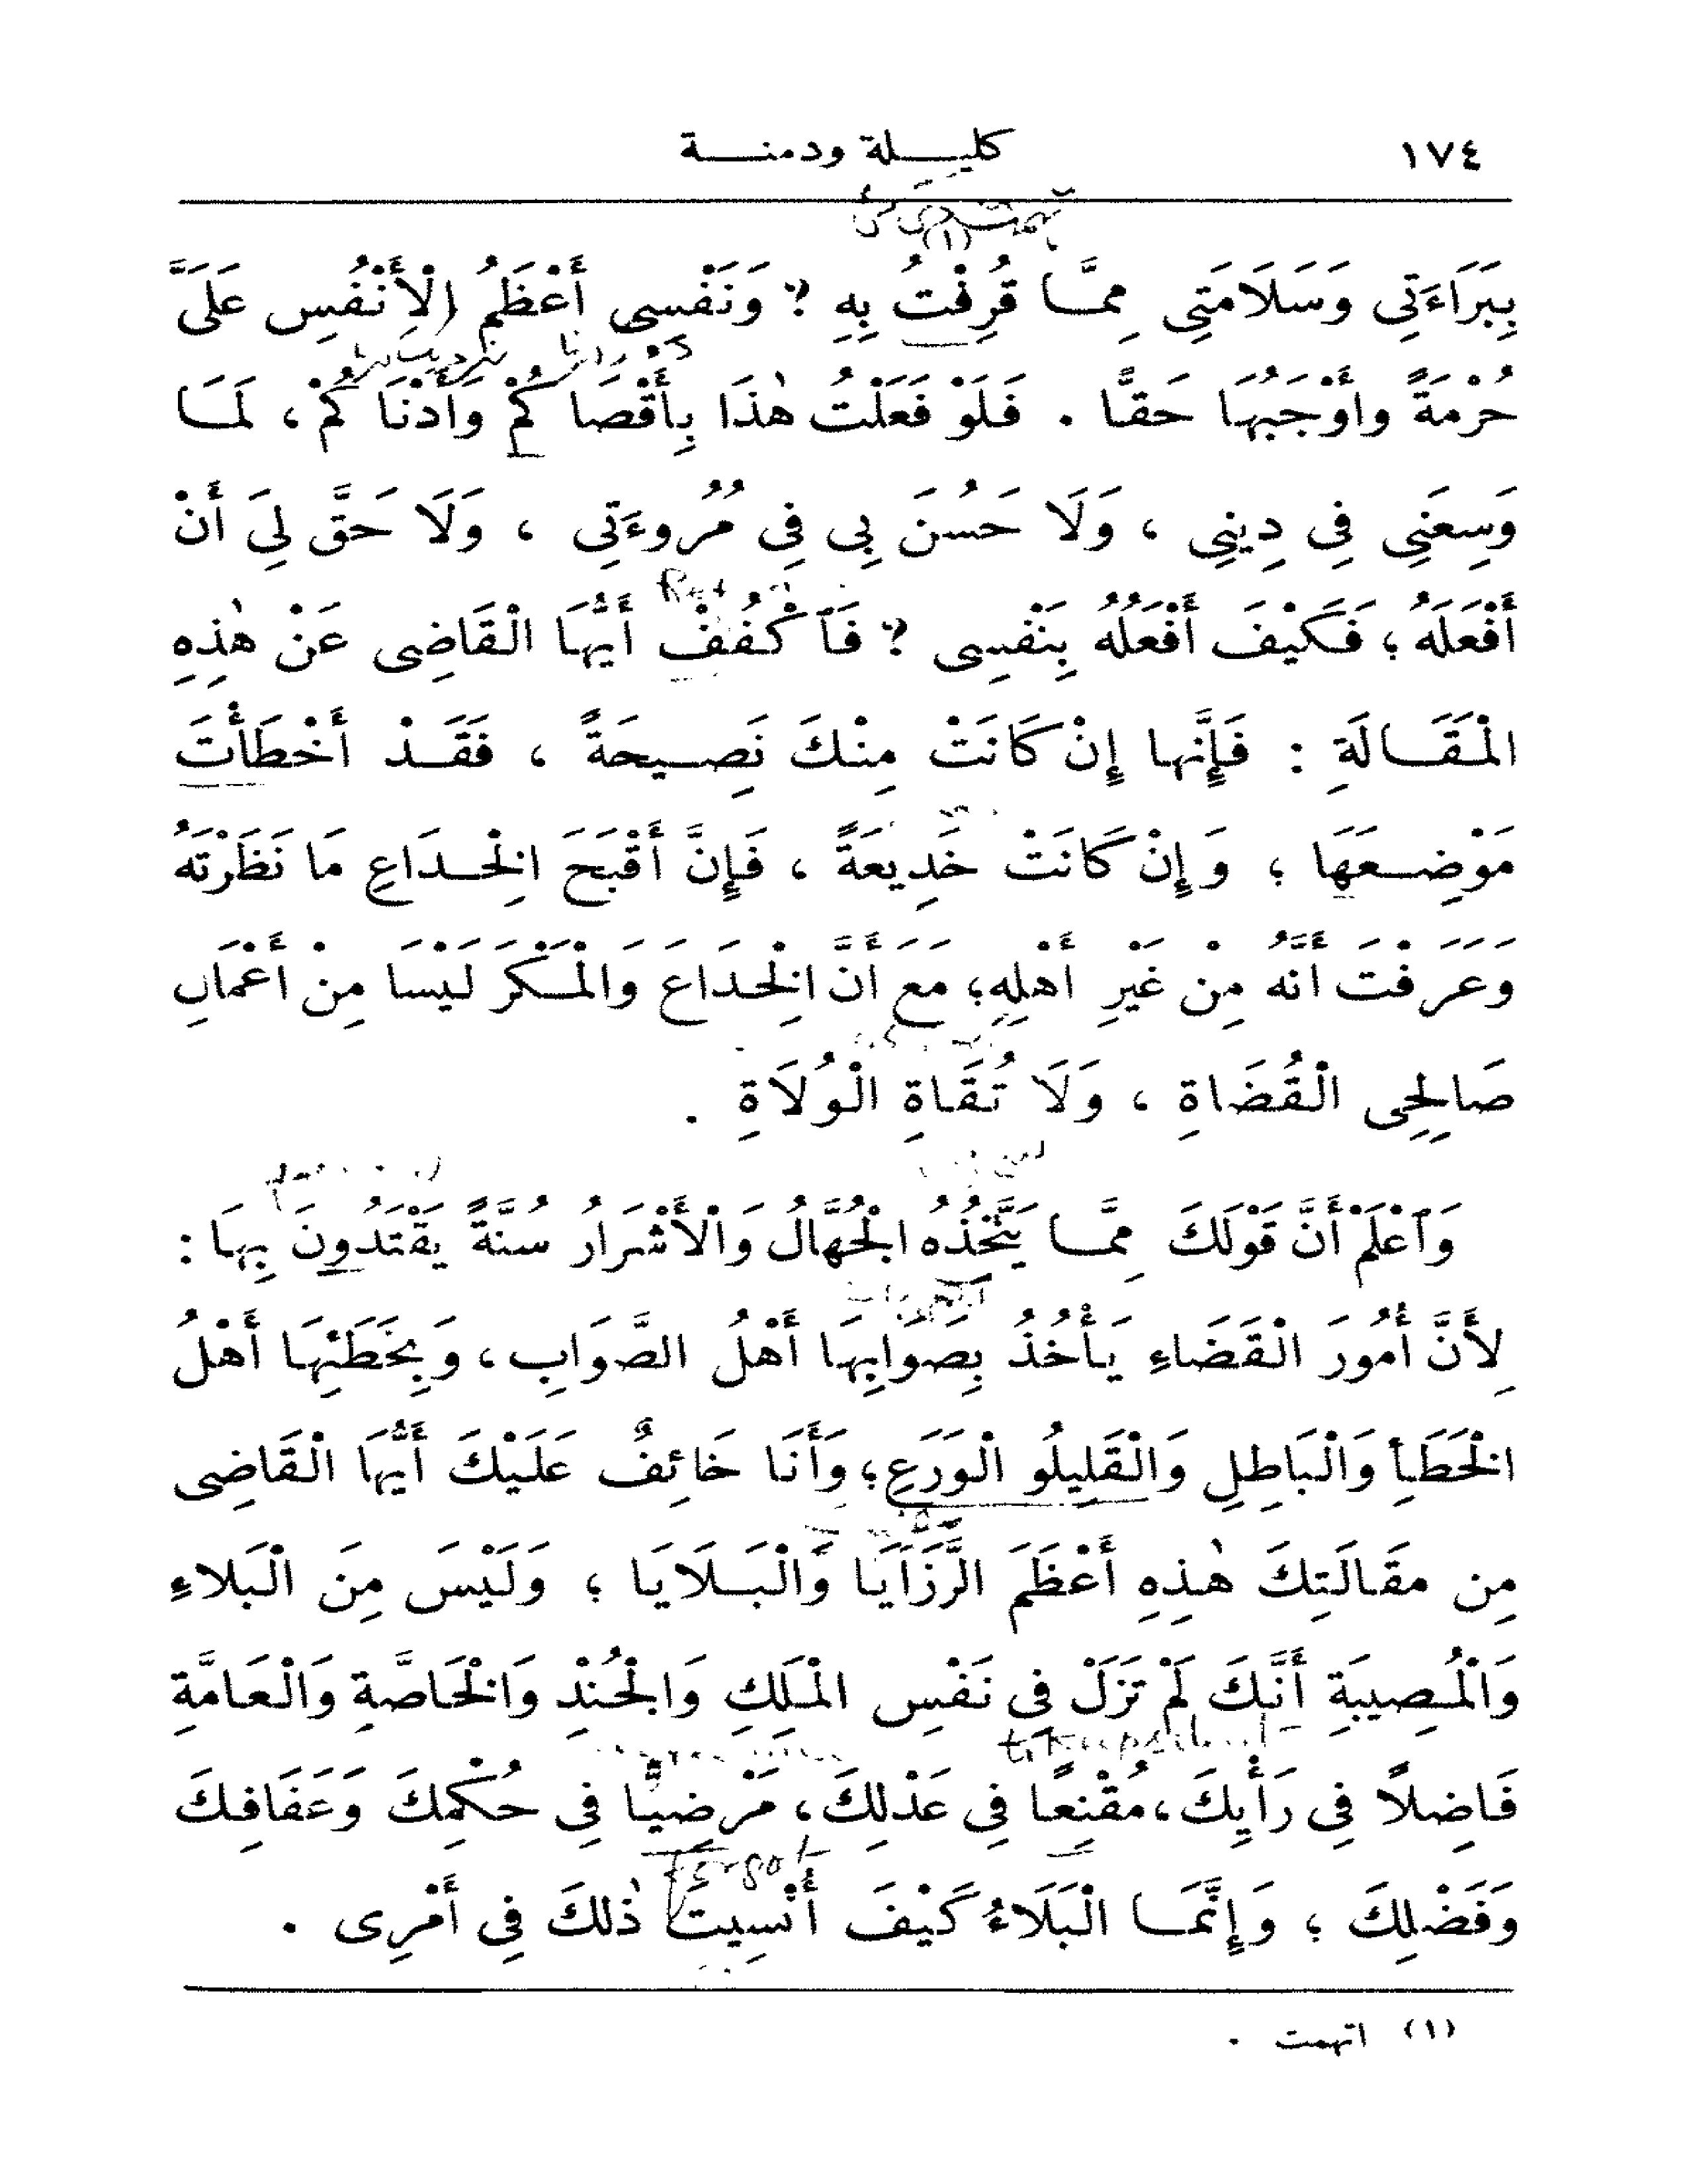 ١٧٤
كليلة ودمنة
بِبَرَاءَتِى وَسَلَامَتِى مِمَّا قُرِفْتُ (١) بِهِ ؟ وَنَفْسِى أَعْظَمُ الْأَنْفُسِ عَلَىَّ
حُرْمَةً وأَوْجَبُهَا حَقًّا . فَلَوْ فَعَلْتُ هٰذَا بِأَقْصَاكُمْ وَأَدْنَاكُمْ ، لَمَا
وَسِعَنِى فِى دِينِى ، وَلَا حَسُنَ بِى فِى مُرُوءَتِى ، وَلَا حَقَّ لِىَ أَنْ
أَفْعَلَهُ ؛ فَكَيْفَ أَفْعَلُهُ بِنَفْسِى ؟ فَٱكْفُفْ أَيُّهَا الْقَاضِى عَنْ هٰذِهِ
الْمَقَالَةِ : فَإِنَّها إِنْ كَانَتْ مِنْكَ نَصِيحَةً ، فَقَدْ أَخْطَأْتَ
مَوْضِعَهَا ؛ وَإِنْ كَانَتْ خَدِيعَةً ، فَإِنَّ أَقْبَحَ الْخِدَاعِ مَا نَظَرْتَهُ
وَعَرَفْتَ أَنَّهُ مِنْ غَيْرِ أَهْلِهِ؛ مَعَ أَنَّ الْخِدَاعَ وَالْمَكْرَ لَيْسَا مِنْ أَعْمَالِ
صَالِحِى الْقُضَاةِ ، وَلَا تُقَاةِ الْوُلَاةِ .
وَٱعْلَمْ أَنَّ قَوْلَكَ مِمَّا يَتَّخِذُهُ الْجُهَّالُ وَالْأَشْرَارُ سُنَّةً يَقْتَدُونَ بِهَا :
لِأَنَّ أُمُورَ الْقَضَاءِ يَأْخُذُ بِصَوَابِهَا أَهْلُ الصَّوَابِ، وَبِخَطَئِهَا أَهْلُ
الْخَطَأِ وَالْبَاطِلِ وَالْقَلِيلُو الْوَرَعِ؛ وَأَنَا خَائِفٌ عَلَيْكَ أَيُّهَا الْقَاضِى
مِن مقَالَتِكَ هٰذِهِ أَعْظَمَ الرَّزَايَا وَالْبَلَايَا ؛ وَلَيْسَ مِنَ الْبَلاءِ
وَالْمُصِيبَةِ أَنَّكَ لَمْ تَزَلْ فِى نَفْسِ الْمَلِكِ وَالْجُنْدِ وَالْخَاصَّةِ وَالْعَامَّةِ
فَاضِلًا فِى رَأْيِكَ، مُقْنِعًا فِى عَدْلِكَ، مَرْضِيًّا فِى حُكْمِكَ وَعَفَافِكَ
Forgot
وَفَضْلِكَ ؛ وَإِنَّمَا الْبَلَاءُ كَيْفَ أُنْسِيتَ ذٰلكَ فِى أَمْرِى .
(١) اتهمت .